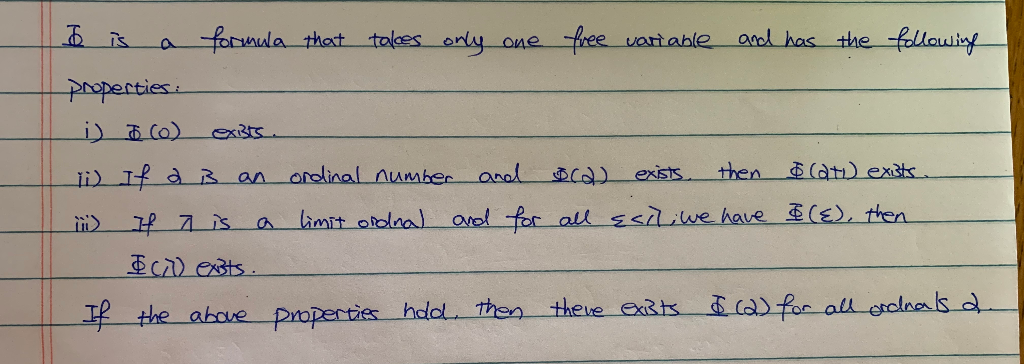 Φ is a formula that takes only one free variable and has the following
properties:
i) Φ(0) exists.
ii) If α is an ordinal number and Φ(α) exists. then Φ(α+1) exists.
iii) If λ is a limit ordinal and for all ξ<λ, we have Φ(ξ), then
Φ(λ) exists.
If the above properties hold, then there exists Φ(α) for all ordinals α.